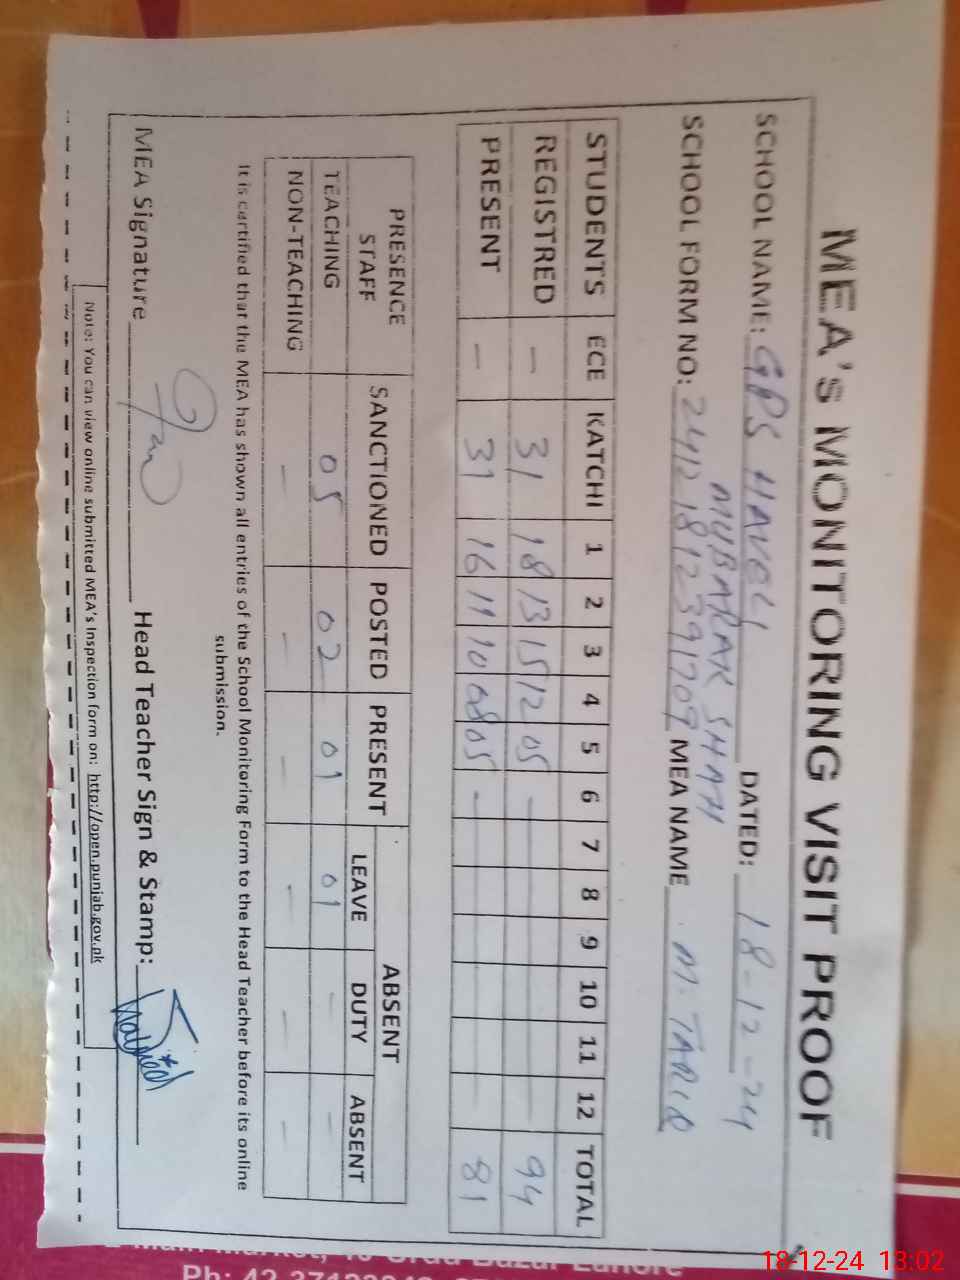 MEA's MONITORING VISIT PROOF
SCHOOL NAME: GPS HAVELI DATED: 18-12-24
MUBARAK SHAH
SCHOOL FORM NO: 24121812391709 MEA NAME M. TARIQ
STUDENTS ECE KATCHI 1 2 3 4 5 6 7 8 9 10 11 12 TOTAL
REGISTRED — 31 18 13 15 12 05 — 94
PRESENT — 31 16 11 10 08 05 — 81
PRESENCE STAFF SANCTIONED POSTED PRESENT ABSENT
LEAVE DUTY ABSENT
TEACHING 05 02 01 01 — —
NON-TEACHING — — — — — —
It is certified that the MEA has shown all entries of the School Monitoring Form to the Head Teacher before its online
submission.
MEA Signature Head Teacher Sign & Stamp:
Note: You can view online submitted MEA's Inspection form on: http://open.punjab.gov.pk
Urdu Bazar Lahore
Ph: 42
18-12-24 13:02